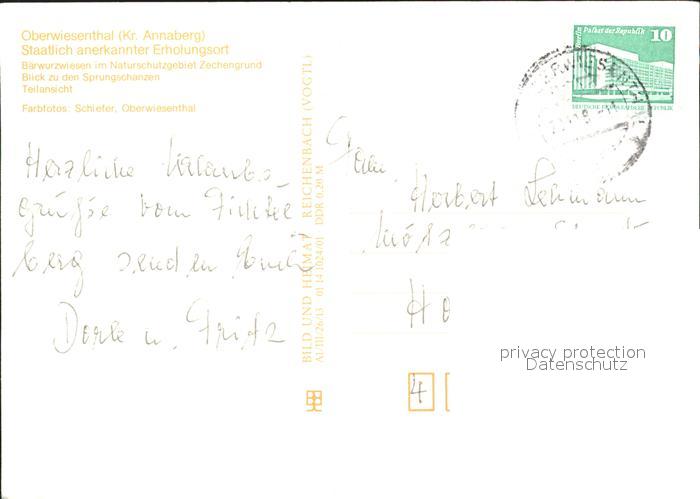 Oberwiesenthal (Kr. Annaberg)
Staatlich anerkannter Erholungsort
Bärwurzwiesen im Naturschutzgebiet Zechengrund
Blick zu den Sprungschanzen
Teilansicht
Farbfotos: Schiefer, Oberwiesenthal
Herzliche Urlaubs-
grüße vom Fichtel
berg senden Euch
Dorle u. Fritz
BILD UND HEIMAT REICHENBACH (VOGTL)
A1/III/26/13 01 14 1024/01 DDR 0,20 M
Palast der Republik
10
DEUTSCHE DEMOKRATISCHE REPUBLIK
Fam.
Herbert Lehmann
Ho
4
privacy protection
Datenschutz